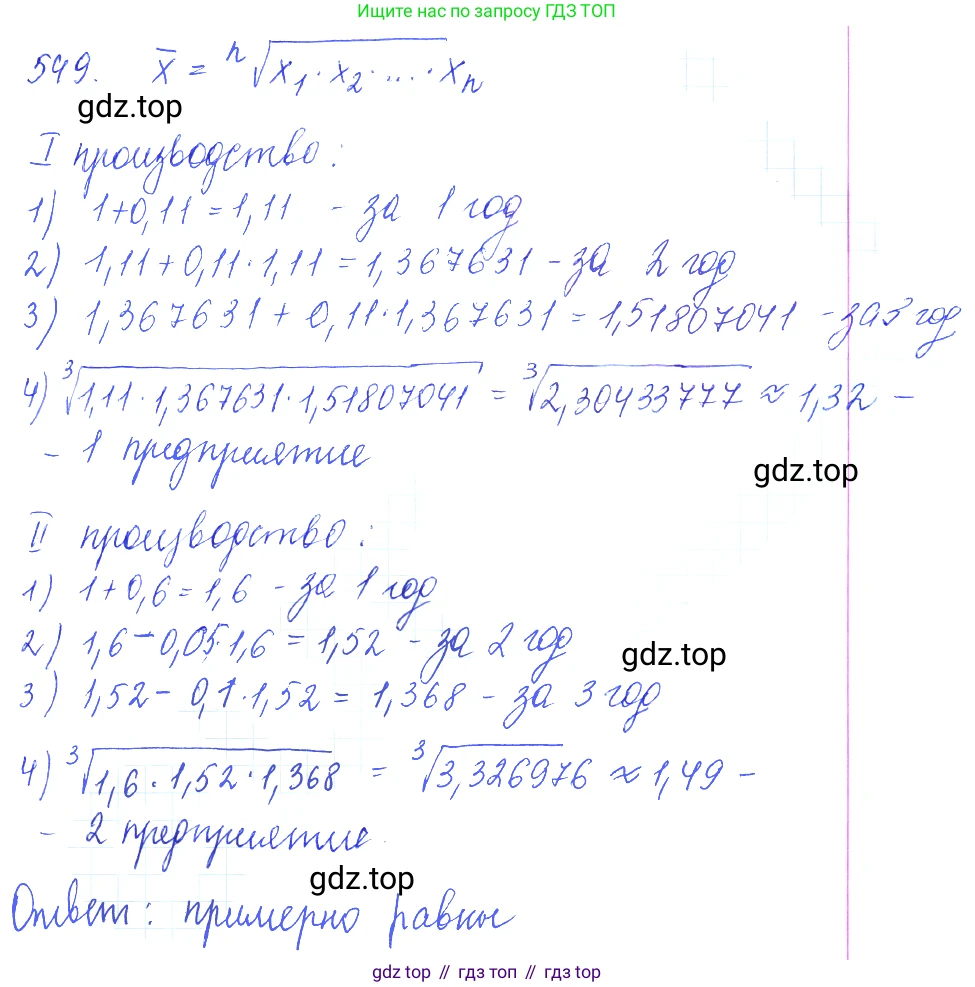 Ищите нас по запросу ГДЗ ТОП
549. x̄ = ⁿ√(x₁ · x₂ · ... · xₙ)
gdz.top
I производство:
1) 1+0,11 = 1,11 - за 1 год
2) 1,11 + 0,11 · 1,11 = 1,367631 - за 2 год
3) 1,367631 + 0,11 · 1,367631 = 1,51807041 - за 3 год
4) ³√(1,11 · 1,367631 · 1,51807041) = ³√(2,30433777) ≈ 1,32 -
- 1 предприятие
gdz.top
II производство:
1) 1+0,6 = 1,6 - за 1 год
2) 1,6 - 0,05 · 1,6 = 1,52 - за 2 год
gdz.top
3) 1,52 - 0,1 · 1,52 = 1,368 - за 3 год
4) ³√(1,6 · 1,52 · 1,368) = ³√(3,326976) ≈ 1,49 -
- 2 предприятие
gdz.top
Ответ: примерно равны
gdz top // гдз топ // gdz top